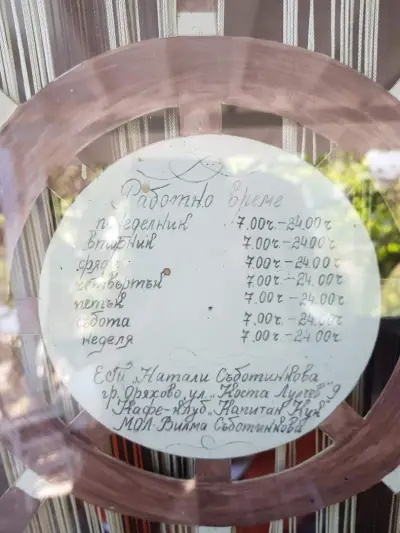 Работно време
понеделник 7.00ч.-24.00ч.
вторник 7.00ч.-24.00ч.
сряда 7.00ч.-24.00ч.
четвъртък 7.00ч.-24.00ч.
петък 7.00ч.-24.00ч.
събота 7.00ч.-24.00ч.
неделя 7.00ч.-24.00ч.
ЕСТ "Натали Съботинкова
гр. Оряхово, ул. "Коста Лулчев" 9
Кафе-клуб "Капитан Кук"
МОЛ: Вилма Съботинкова